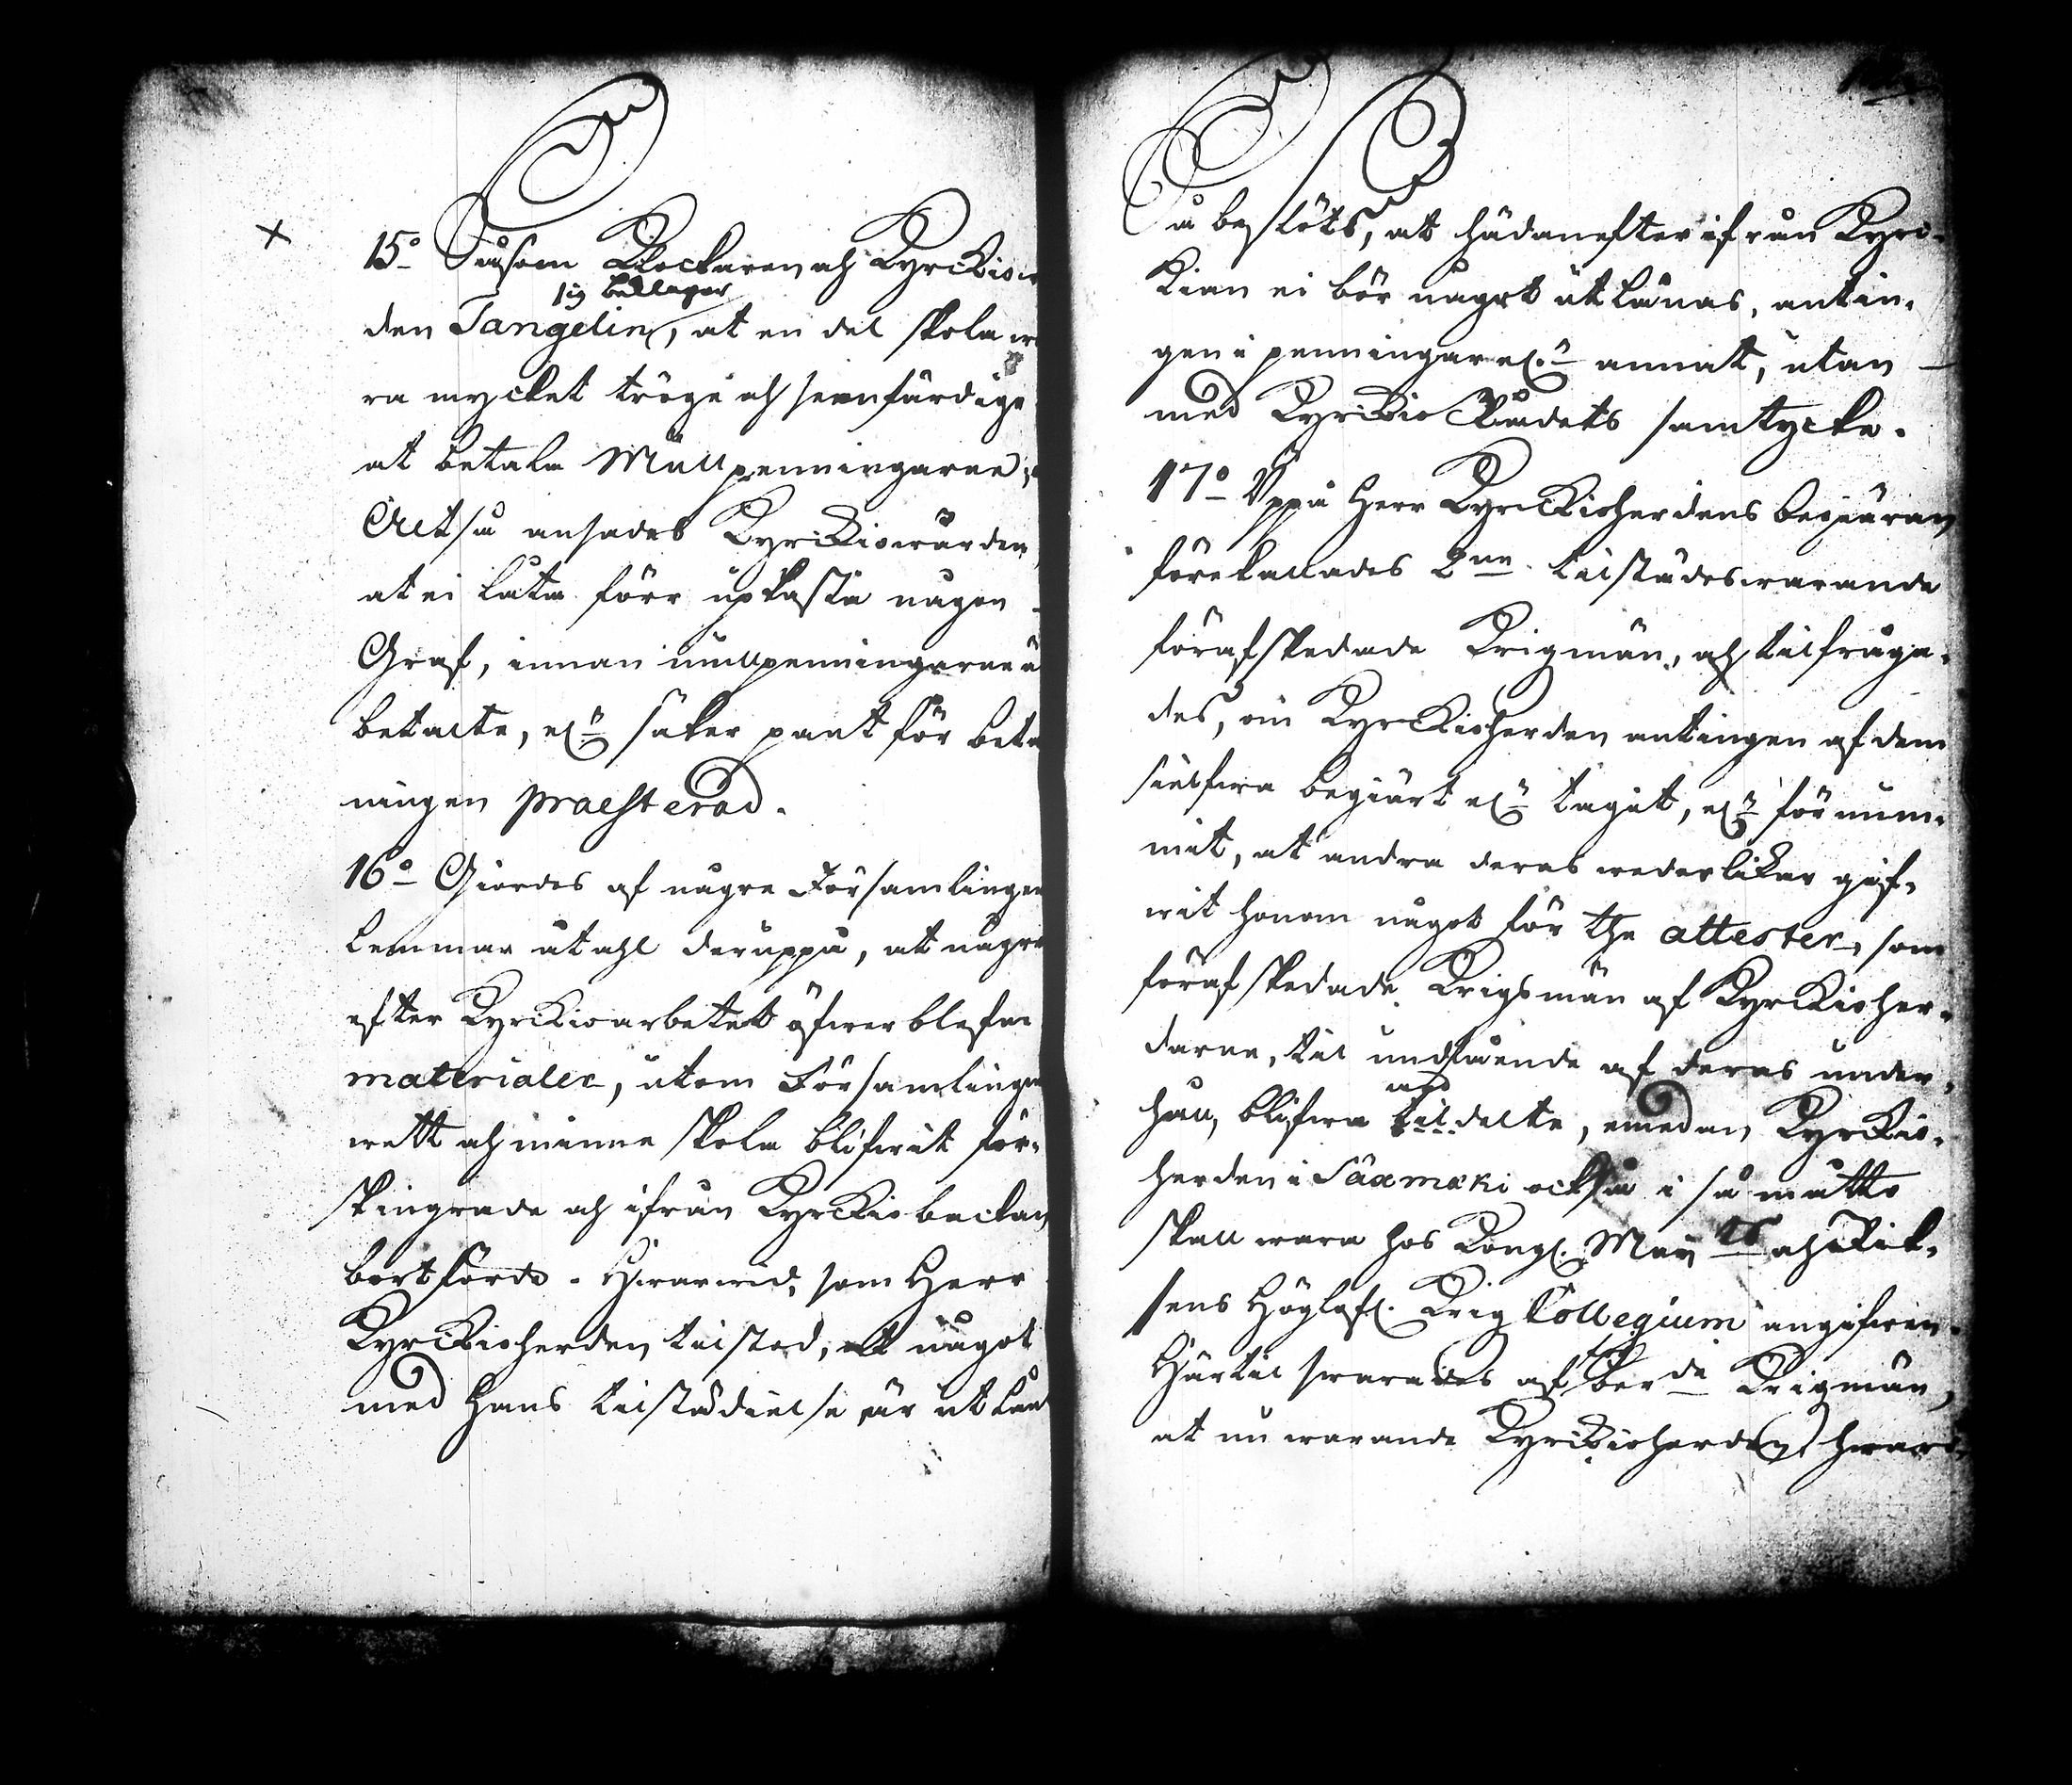 15o Såsom Klockaren och Kyrckiow
sig beklagar
den Tangelin, at en del skola wa
ra mycket tröge och seenfärdige
at betala Mullpenningarne;
Altså ansades Kyrckiowärden,
at ei låta förr upkasta någon
Graf, innan mullpenningarne ä
betalte, elr säker pant för beta
ningen praesterad.
16o Giordes af någre Församlingen
lemmar åtahl deruppå, at någre
efter Kyrckioarbetet öfwerblefne
materialer, utom Församlingen
wett och minne skola blifwit för-
skingrade och ifrån Kyrckiobackan
bortförde. Hwarwid, som Herr
Kyrckioherden tilstod, at något
med Hans tilstådielse är utlånt
Så beslöts, at hädanefter ifrån Kyrc-
kian ei bör någet utlånas, antin-
gen i penningar elr annat, utan
med Kyrckio Rådets samtycke.
17o Uppå Herr Kyrckioherdens begiäran
förekallades 2ne tilstädeswarande
förafskedade Krigmän, och tilfråga-
des, om Kyrckioherden antingen af dem
sielfwa begiärt elr tagit, elr förnum-
mit, at andra deras wederlikar gif-
wit honom något för the attester, som
förafskedade Krigsmän af Kyrckioher-
darne, til undfående af deras under-
håll, blifwa
tildelte, emedan Kyrckio-
herden i Sääxmäki också i så måtto
skall wara hos Kongl. Maij:ts och Rik-
sens Höglofl. Krig Collegium angifwen.
Härtil swarades af bem:de Krigmän,
at nu warande Kyrckioherden hwar-